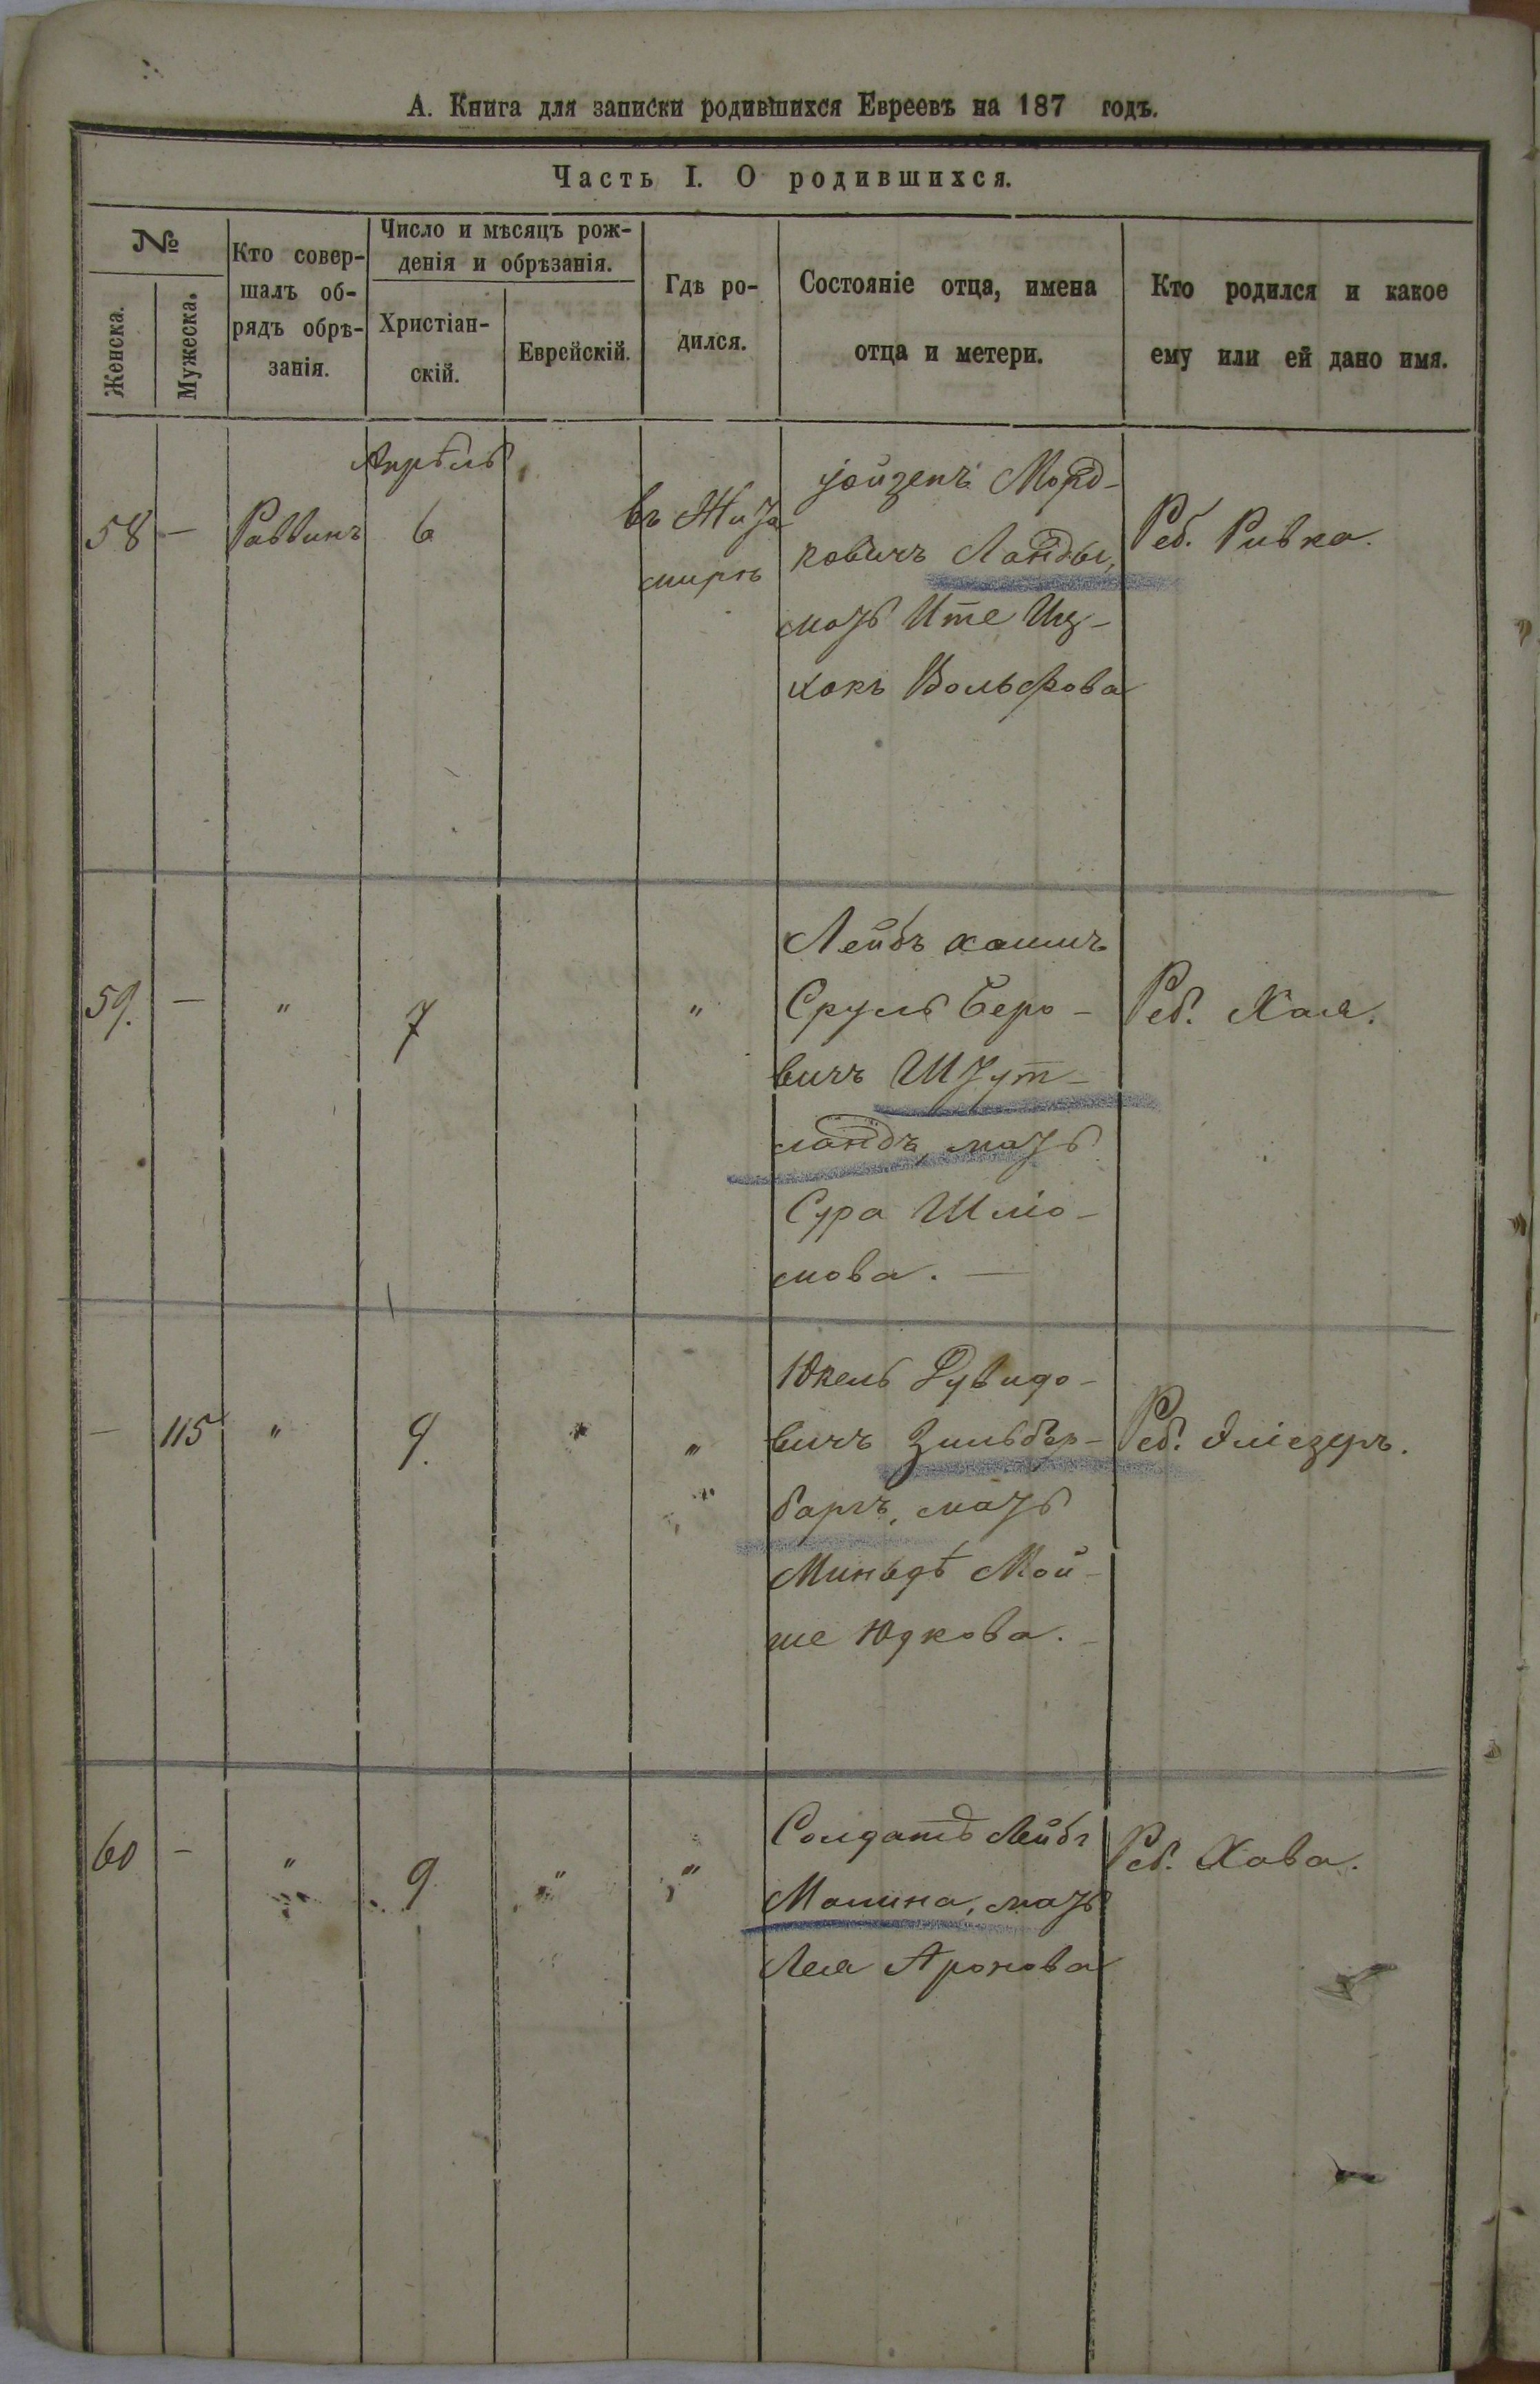 А. Книга для записки родившихся Евреевъ на 187 годъ.
Часть I. О родившихся.
№
Женска.
Мужеска.
Кто совер-
шалъ об-
рядъ обрѣ-
занія.
Число и мѣсяцъ рож-
денія и обрѣзанія.
Христіан-
скій.
Еврейскій.
Гдѣ ро-
дился.
Состояніе отца, имена
отца и метери.
Кто родился и какое
ему или ей дано имя.
Апрѣль
58 — Раввинъ 6
въ Жито
мирѣ
Морд-
ковичъ Ланды,
мать Ите Иц-
хокъ Вольфова
Реб. Ривка.
59. — " 7 "
Лейбъ
Сруль Беро-
вичъ Штут-
ландъ, мать
Сура Шліо-
мова. —
Реб. Хая.
— 115 " 9. " "
Юкель Дувидо-
вичъ Зильбер-
баргъ, мать
Миньдѣ Мой-
ше Юдкова. —
Реб. Эліезеръ.
60 — " 9 " "
Солдатъ Лейбъ
Малина, мать
Лея Аронова
Реб. Хава.